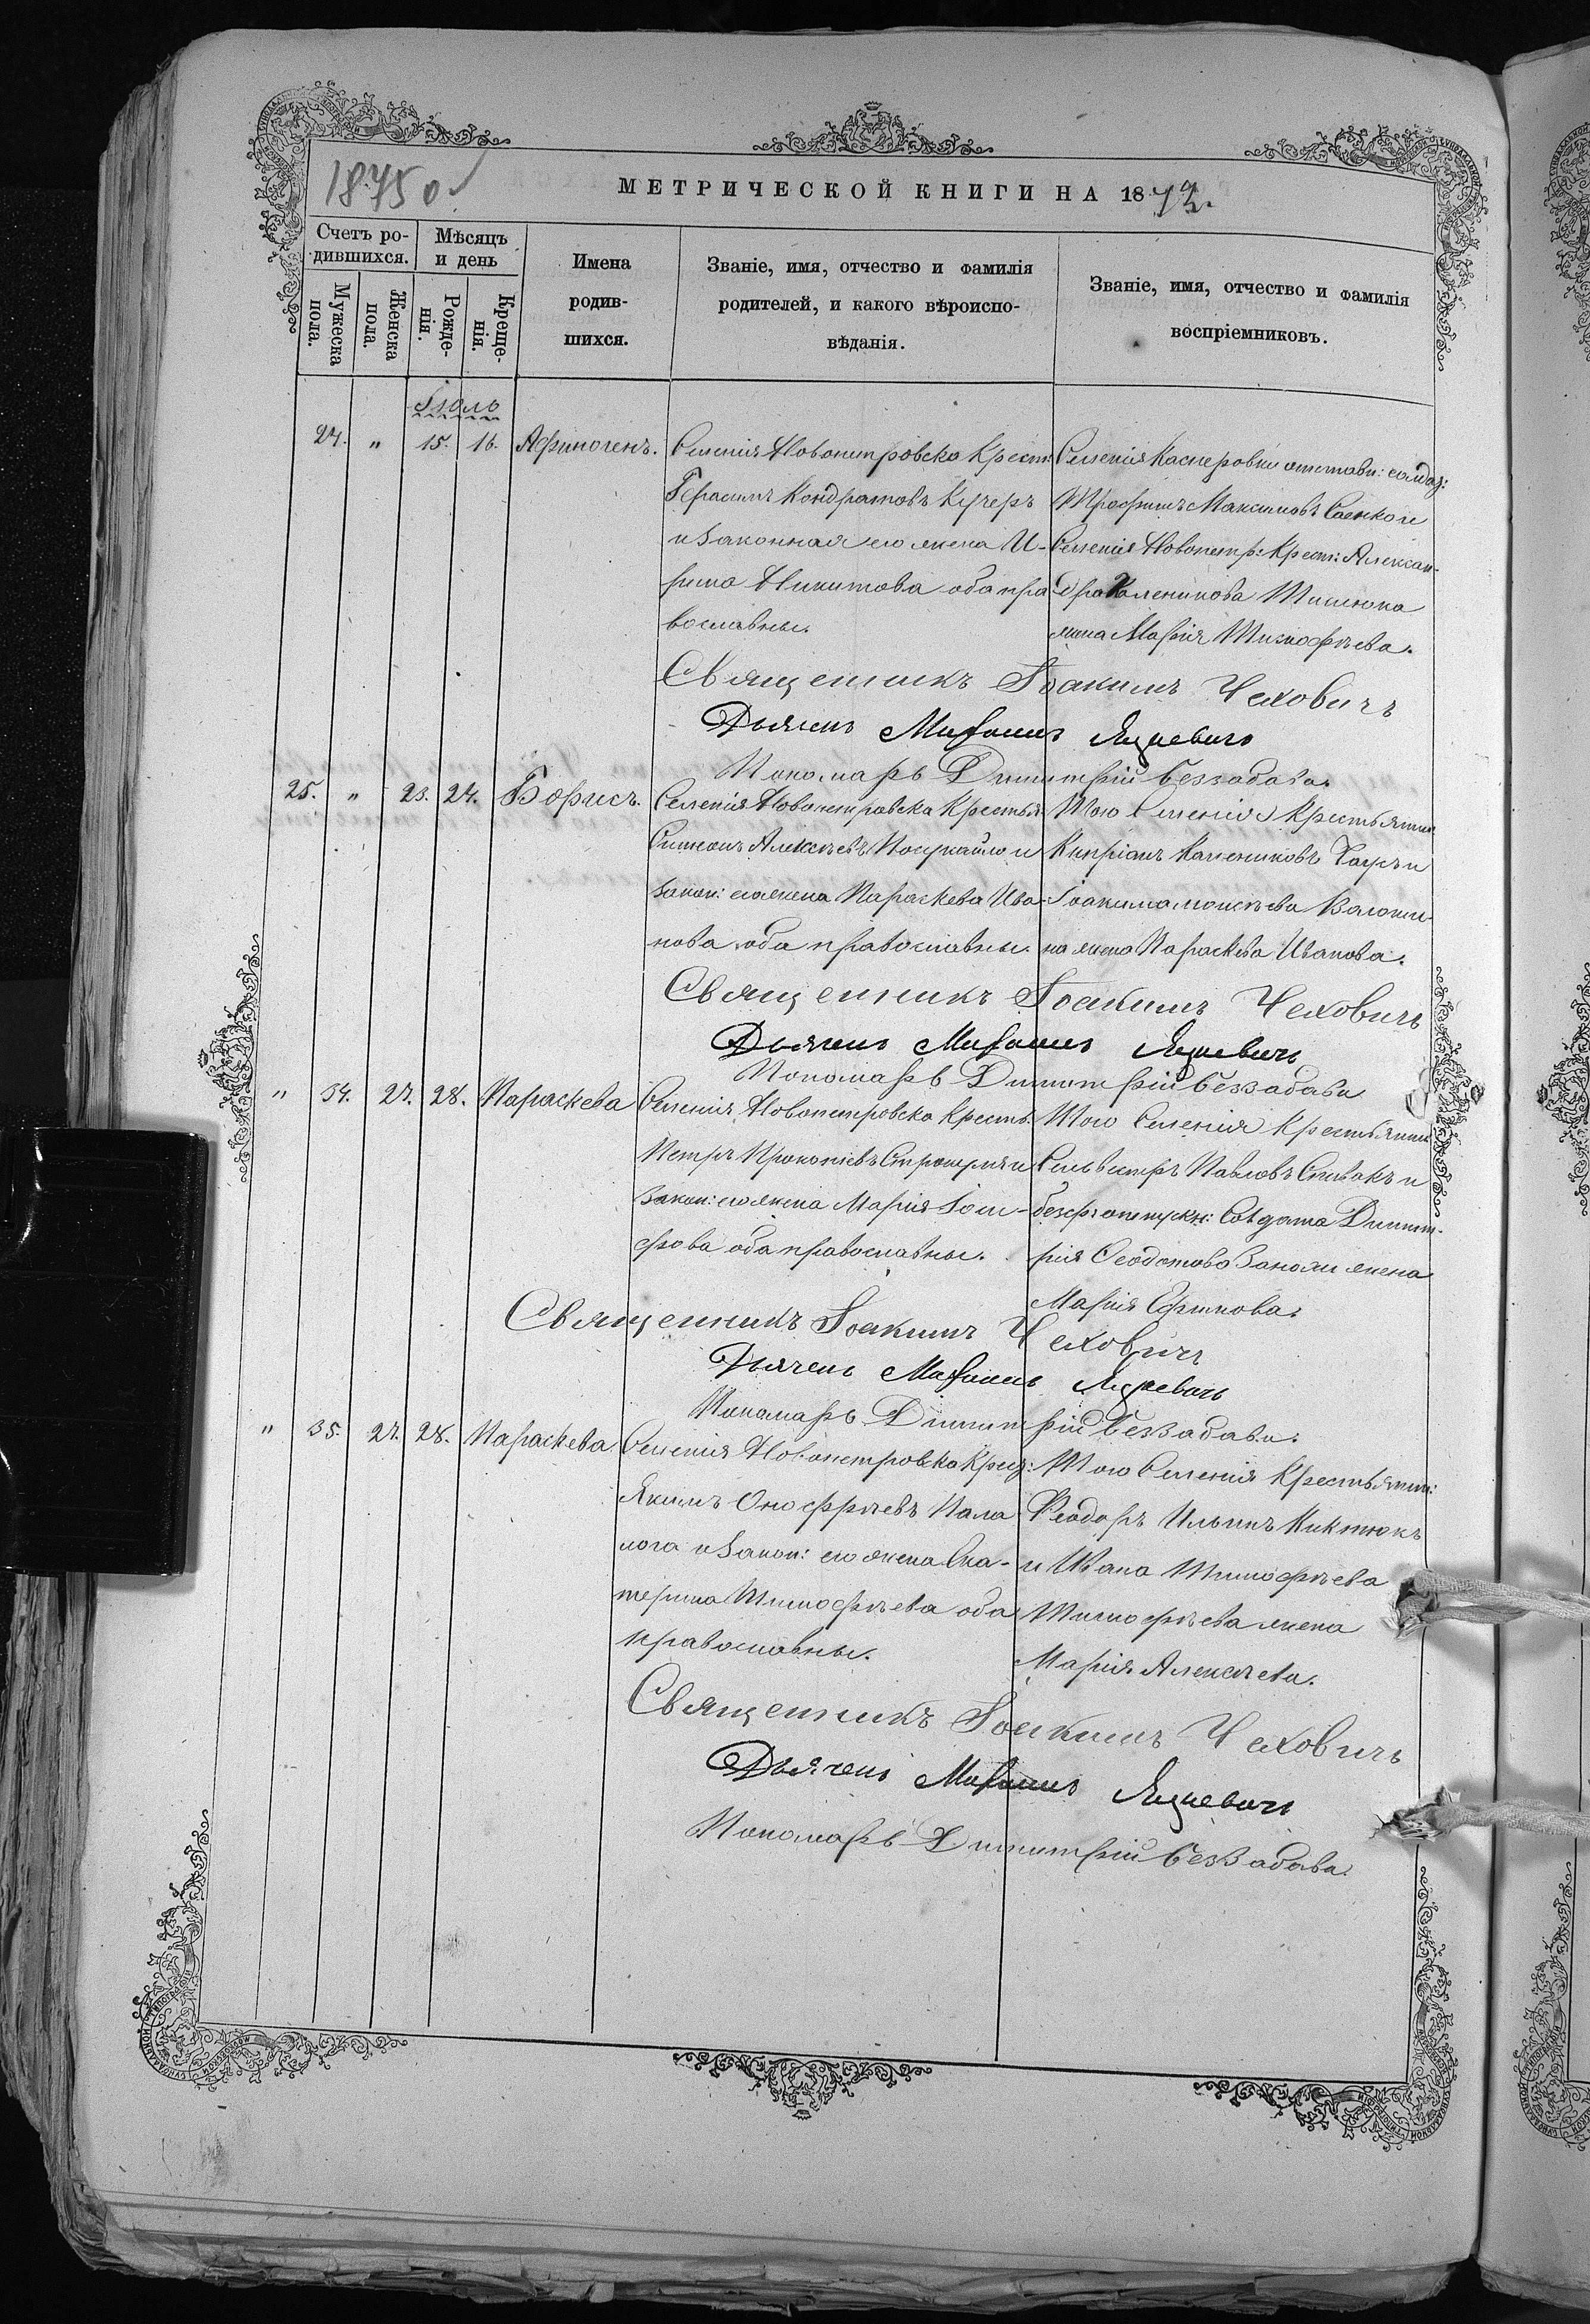 1875 о
МЕТРИЧЕСКОЙ КНИГИ НА 1873.
Счетъ родившихся.
Мужеска пола.
Женска пола.
Мѣсяцъ и день
Рожденія.
Крещенія.
Имена родившихся.
Званіе, имя, отчество и фамилія родителей, и какого вѣроисповѣданія.
Званіе, имя, отчество и фамилія воспріемниковъ.
Іюль
24. " 15. 16. Афиногенъ.
Селенія Новопетровска Крест:
Герасимъ Кондратовъ Кучеръ
и законная его жена И-
рина Никитова оба пра
вославные.
Селенія Касперовки отставн: солдат:
Трофимъ Максимовъ Саенко и
Селенія Новопетр: Крест: Алексан-
дра Каленикова Тишюка
жена Марія Тимофѣева.
Священникъ Іоакимъ Чеховичъ
Дьячекъ Мифодій
Пономарь Димитрій Беззабава.
25. " 23. 24. Борисъ.
Селенія Новопетровска Крестья
Симеонъ Алексѣевъ и
закон: его жена Параскева Ива-
нова оба православные.
Того Селенія Крестьянин
Кипріанъ Калениковъ и
Іоакима Моисѣева
на жена Параскева Иванова.
Священникъ Іоакимъ Чеховичъ
Дьячекъ
Пономарь Димитрій Беззабава
" 34. 27. 28. Параскева
Селенія Новопетровска Кресть
Петръ Прокопіевъ и
закон: его жена Марія Іоси-
фова оба православные.
Того Селенія Крестьянин
Сильвестръ Павловъ Спивакъ и
безср: отпускн: Солдата Димит-
рія Ѳеодотова жена
Марія Ефимова.
Священникъ Іоакимъ Чеховичъ
Дьячекъ
Пономарь Димитрій Беззабава.
" 35. 27. 28. Параскева
Селенія Новопетровска Крес:
Якимъ Онофріевъ Пала
лога и закон: его жена Ека-
терина Тимофѣева оба
православные.
Того Селенія Крестьянин:
Ѳеодоръ Ильинъ Никтюкъ
и Ивана Тимофѣева
Тимофѣева жена
Марія Алексѣева.
Священникъ Іоакимъ Чеховичъ
Дьячекъ
Пономарь Димитрій Беззабава.